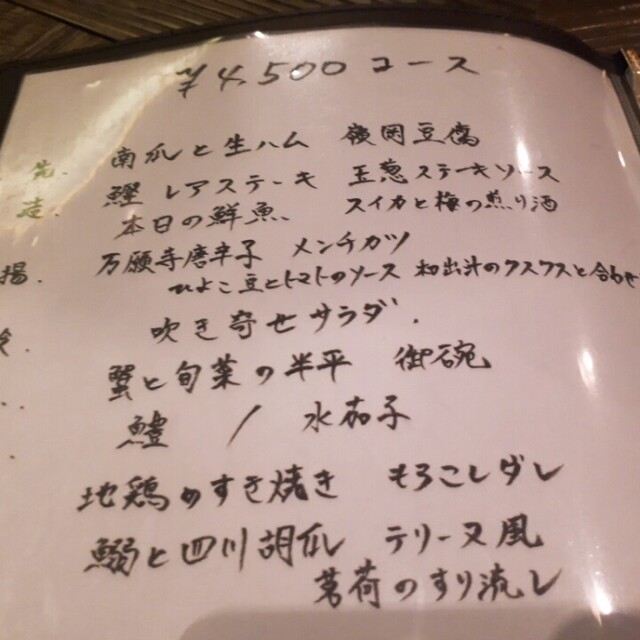 ¥4,500 コース
先 南瓜と生ハム 袱岡豆腐
走. 鰹 レアステーキ 玉葱ステーキソース
本日の鮮魚、 スイカと梅の煎り酒
揚. 万願寺唐辛子 メンチカツ
ひよこ豆とトマトのソース 和出汁のクスクスと合わせ
吹き寄せサラダ.
蟹と旬菜の半平 御碗
鱧 / 水茄子
地鶏のすき焼き もろこしダレ
鰯と四川胡瓜 テリーヌ風
茗荷のすり流し